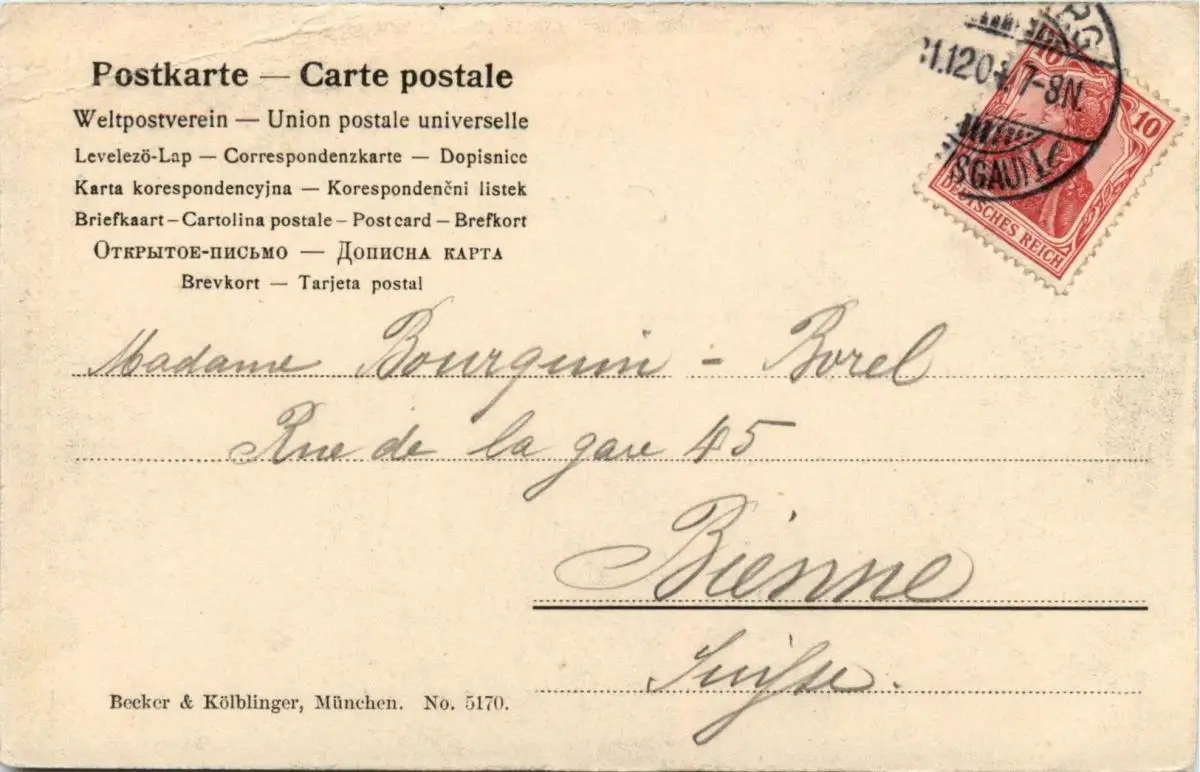 Postkarte — Carte postale
Weltpostverein — Union postale universelle
Levelezö-Lap — Correspondenzkarte — Dopisnice
Karta korespondencyjna — Korespondenčni listek
Briefkaart – Cartolina postale – Post card – Brefkort
Открытое-письмо — Дописна карта
Brevkort — Tarjeta postal
10
10
DEUTSCHES REICH
7-8N.
Madame Bourquin - Borel
Rue de la gare 45
Bienne
Suisse.
Becker & Kölblinger, München. No. 5170.